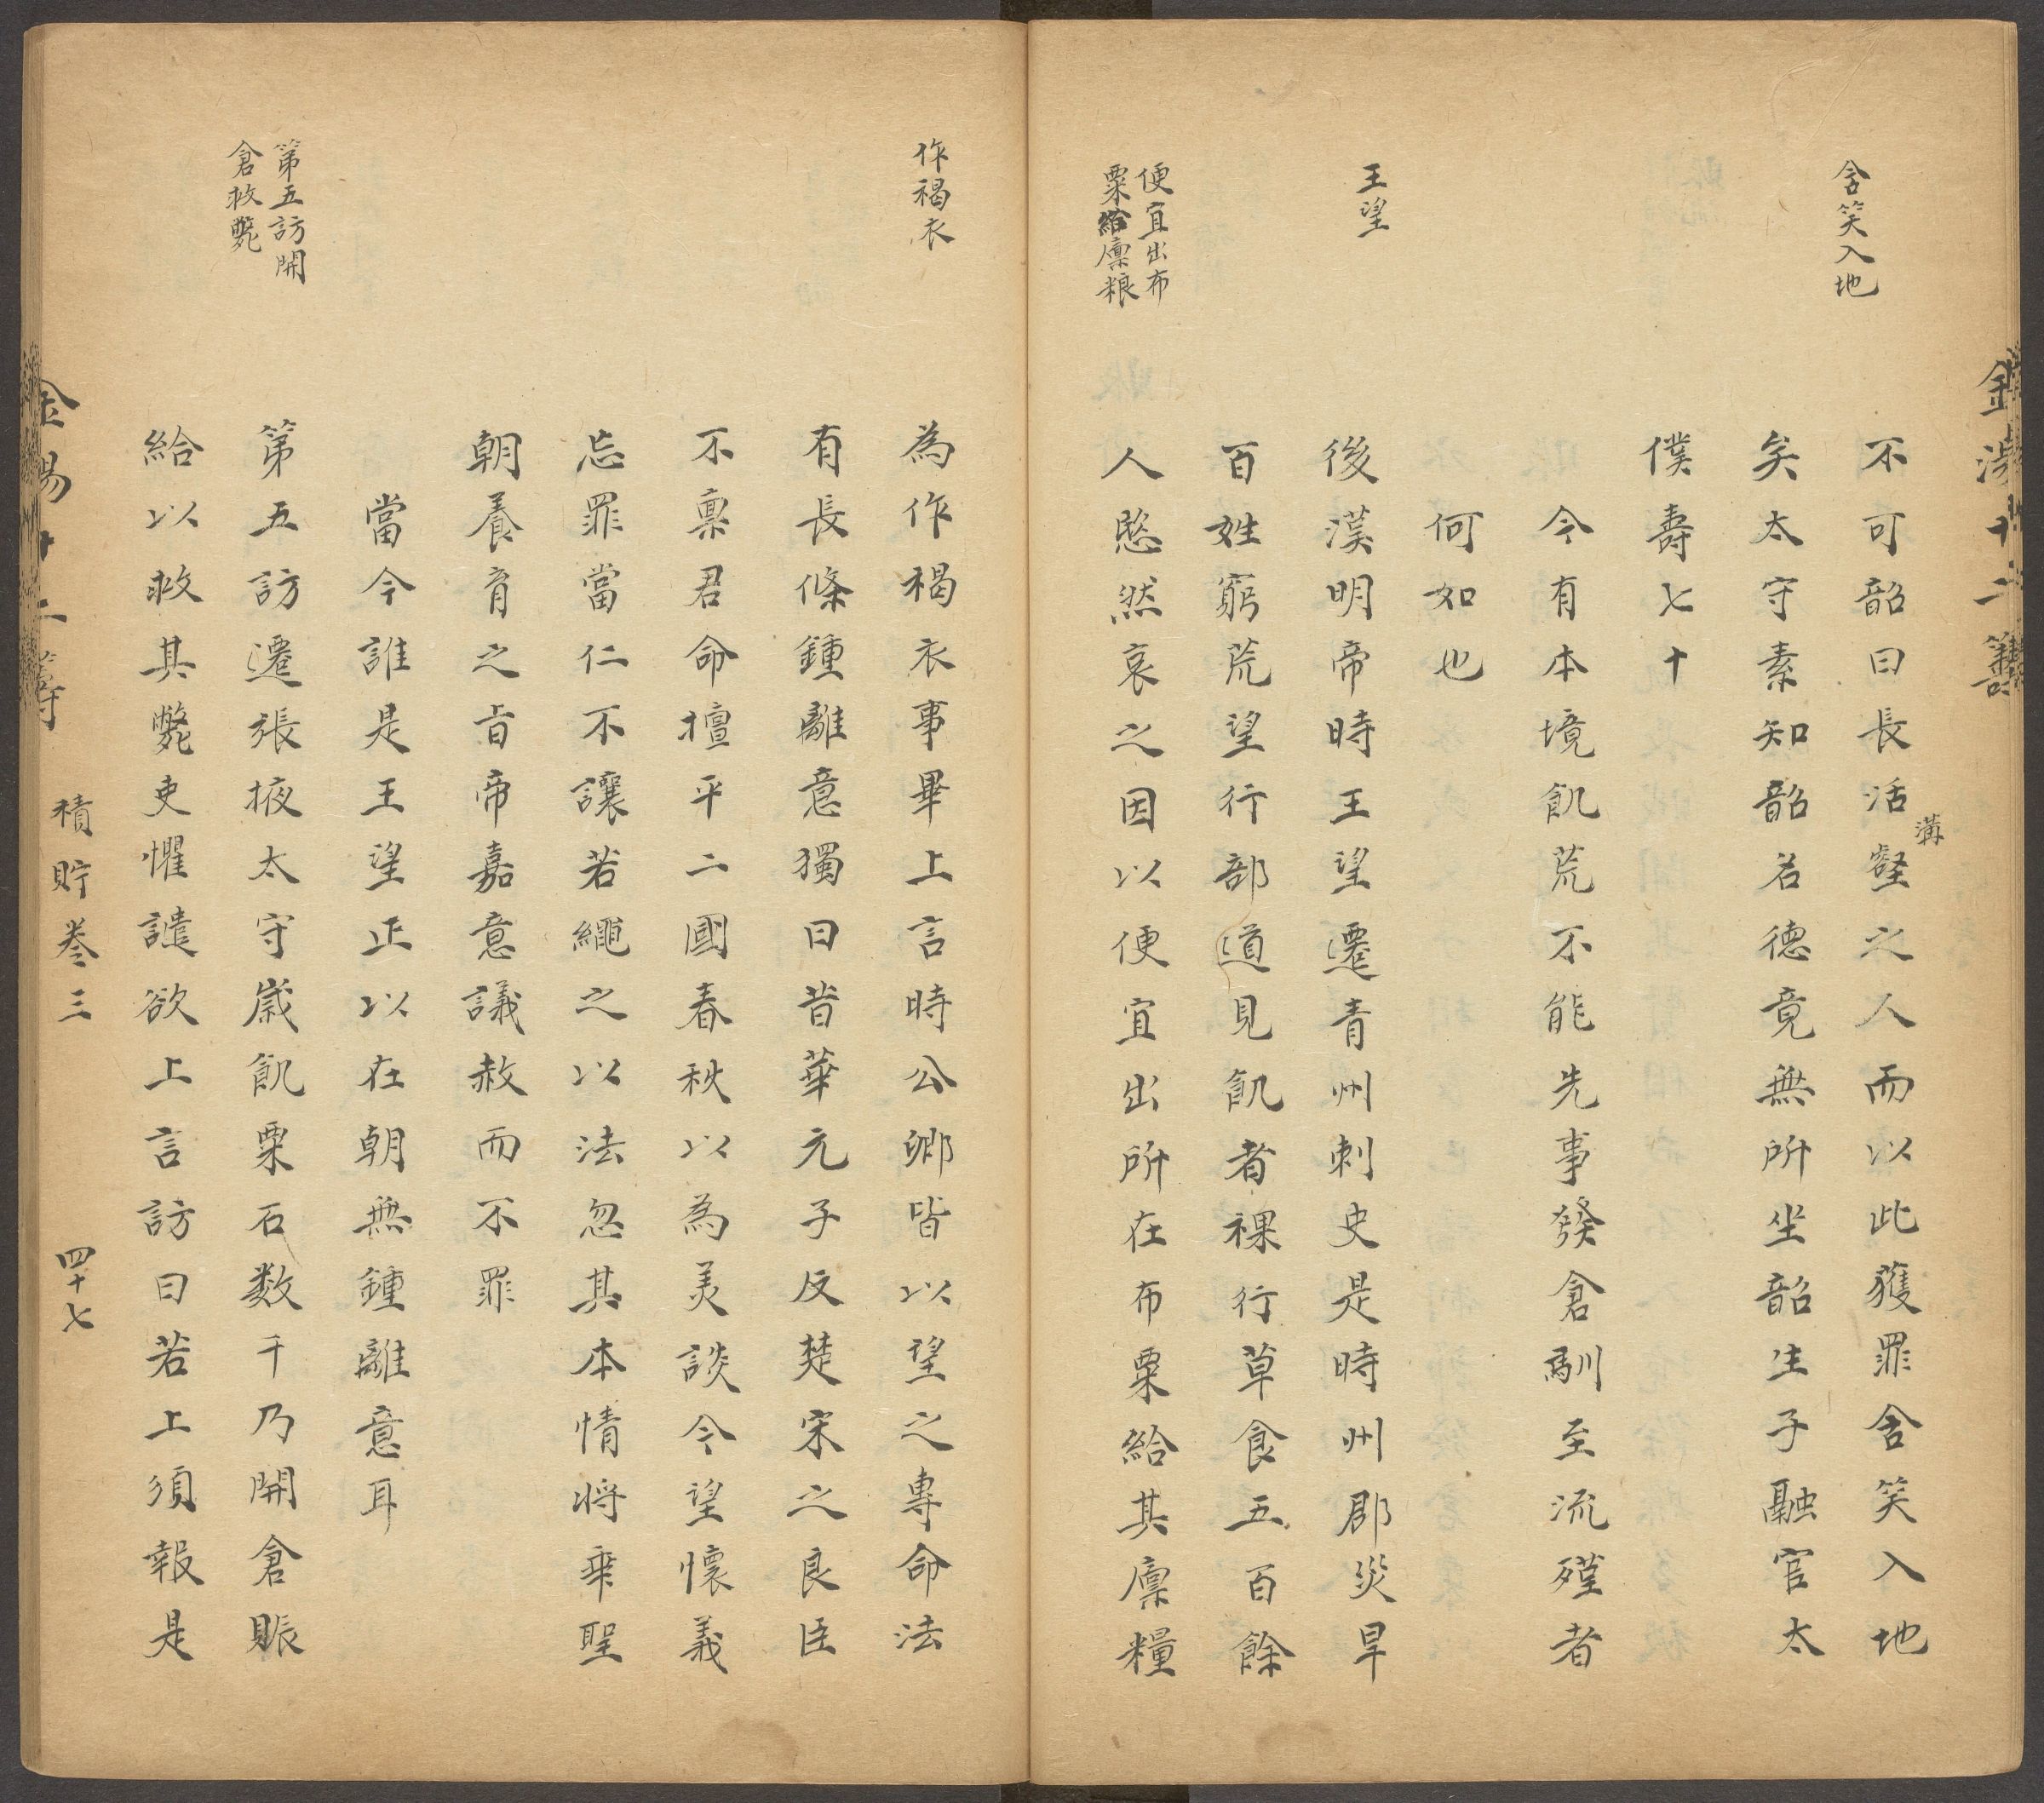 金湯十二籌
含笑入地
不可韶曰長活壑之人而以此獲罪含笑入地
溝
矣太守素知韶名德竟無所坐韶生子融官太
僕壽七十
今有本境飢荒不能先事發倉馴至流殣者
何如也
王望
後漢明帝時王望遷青州刺史是時州郡災旱
百姓窮荒望行部道見飢者裸行草食五百餘
便宜出布
粟給廩粮
人愍然哀之因以便宜出所在布粟給其廩糧
作褐衣
為作褐衣事畢上言時公卿皆以望之專命法
有長條鍾離意獨曰昔華元子反楚宋之良臣
不稟君命擅平二國春秋以為美談今望懷義
忘罪當仁不讓若繩之以法忽其本情将乖聖
朝養育之旨帝嘉意議赦而不罪
當今誰是王望正以在朝無鍾離意耳
第五訪開
倉救斃
第五訪遷張掖太守歲飢粟石数千乃開倉賑
給以救其斃吏懼譴欲上言訪曰若上須報是
金湯十二籌
積貯卷三
四十七